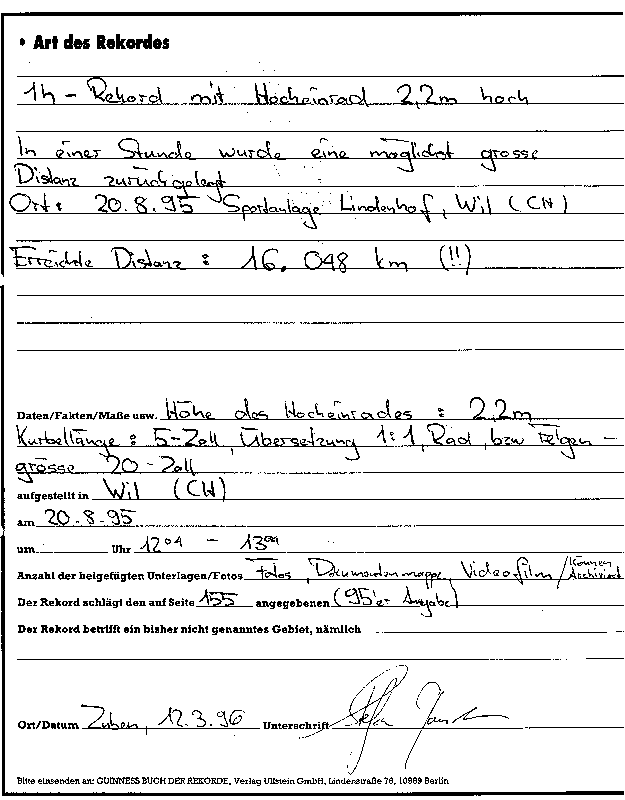 • Art des Rekordes
1h - Rekord mit Hocheinrad 2,2m hoch
In einer Stunde wurde eine möglichst grosse
Distanz zurückgelegt
Ort: 20.8.95 Sportanlage Lindenhof, Wil (CH)
Erreichte Distanz : 16.048 km (!!)
Daten/Fakten/Maße usw. Höhe des Hocheinrades : 2,2m
Kurbellänge : 5-Zoll, Übersetzung 1:1, Rad, bzw Felgen -
grösse 20-Zoll
aufgestellt in Wil (CH)
am 20.8.95
um Uhr 12⁰⁴ - 13⁰⁴
Anzahl der beigefügten Unterlagen/Fotos Fotos, Dokumentenmappe, Videofilm /
Der Rekord schlägt den auf Seite 155 angegebenen (95'er Ausgabe)
Der Rekord betrifft ein bisher nicht genanntes Gebiet, nämlich
Ort/Datum 12.3.96 Unterschrift Stefan
Bitte einsenden an: GUINNESS BUCH DER REKORDE, Verlag Ullstein GmbH, Lindenstraße 76, 10969 Berlin